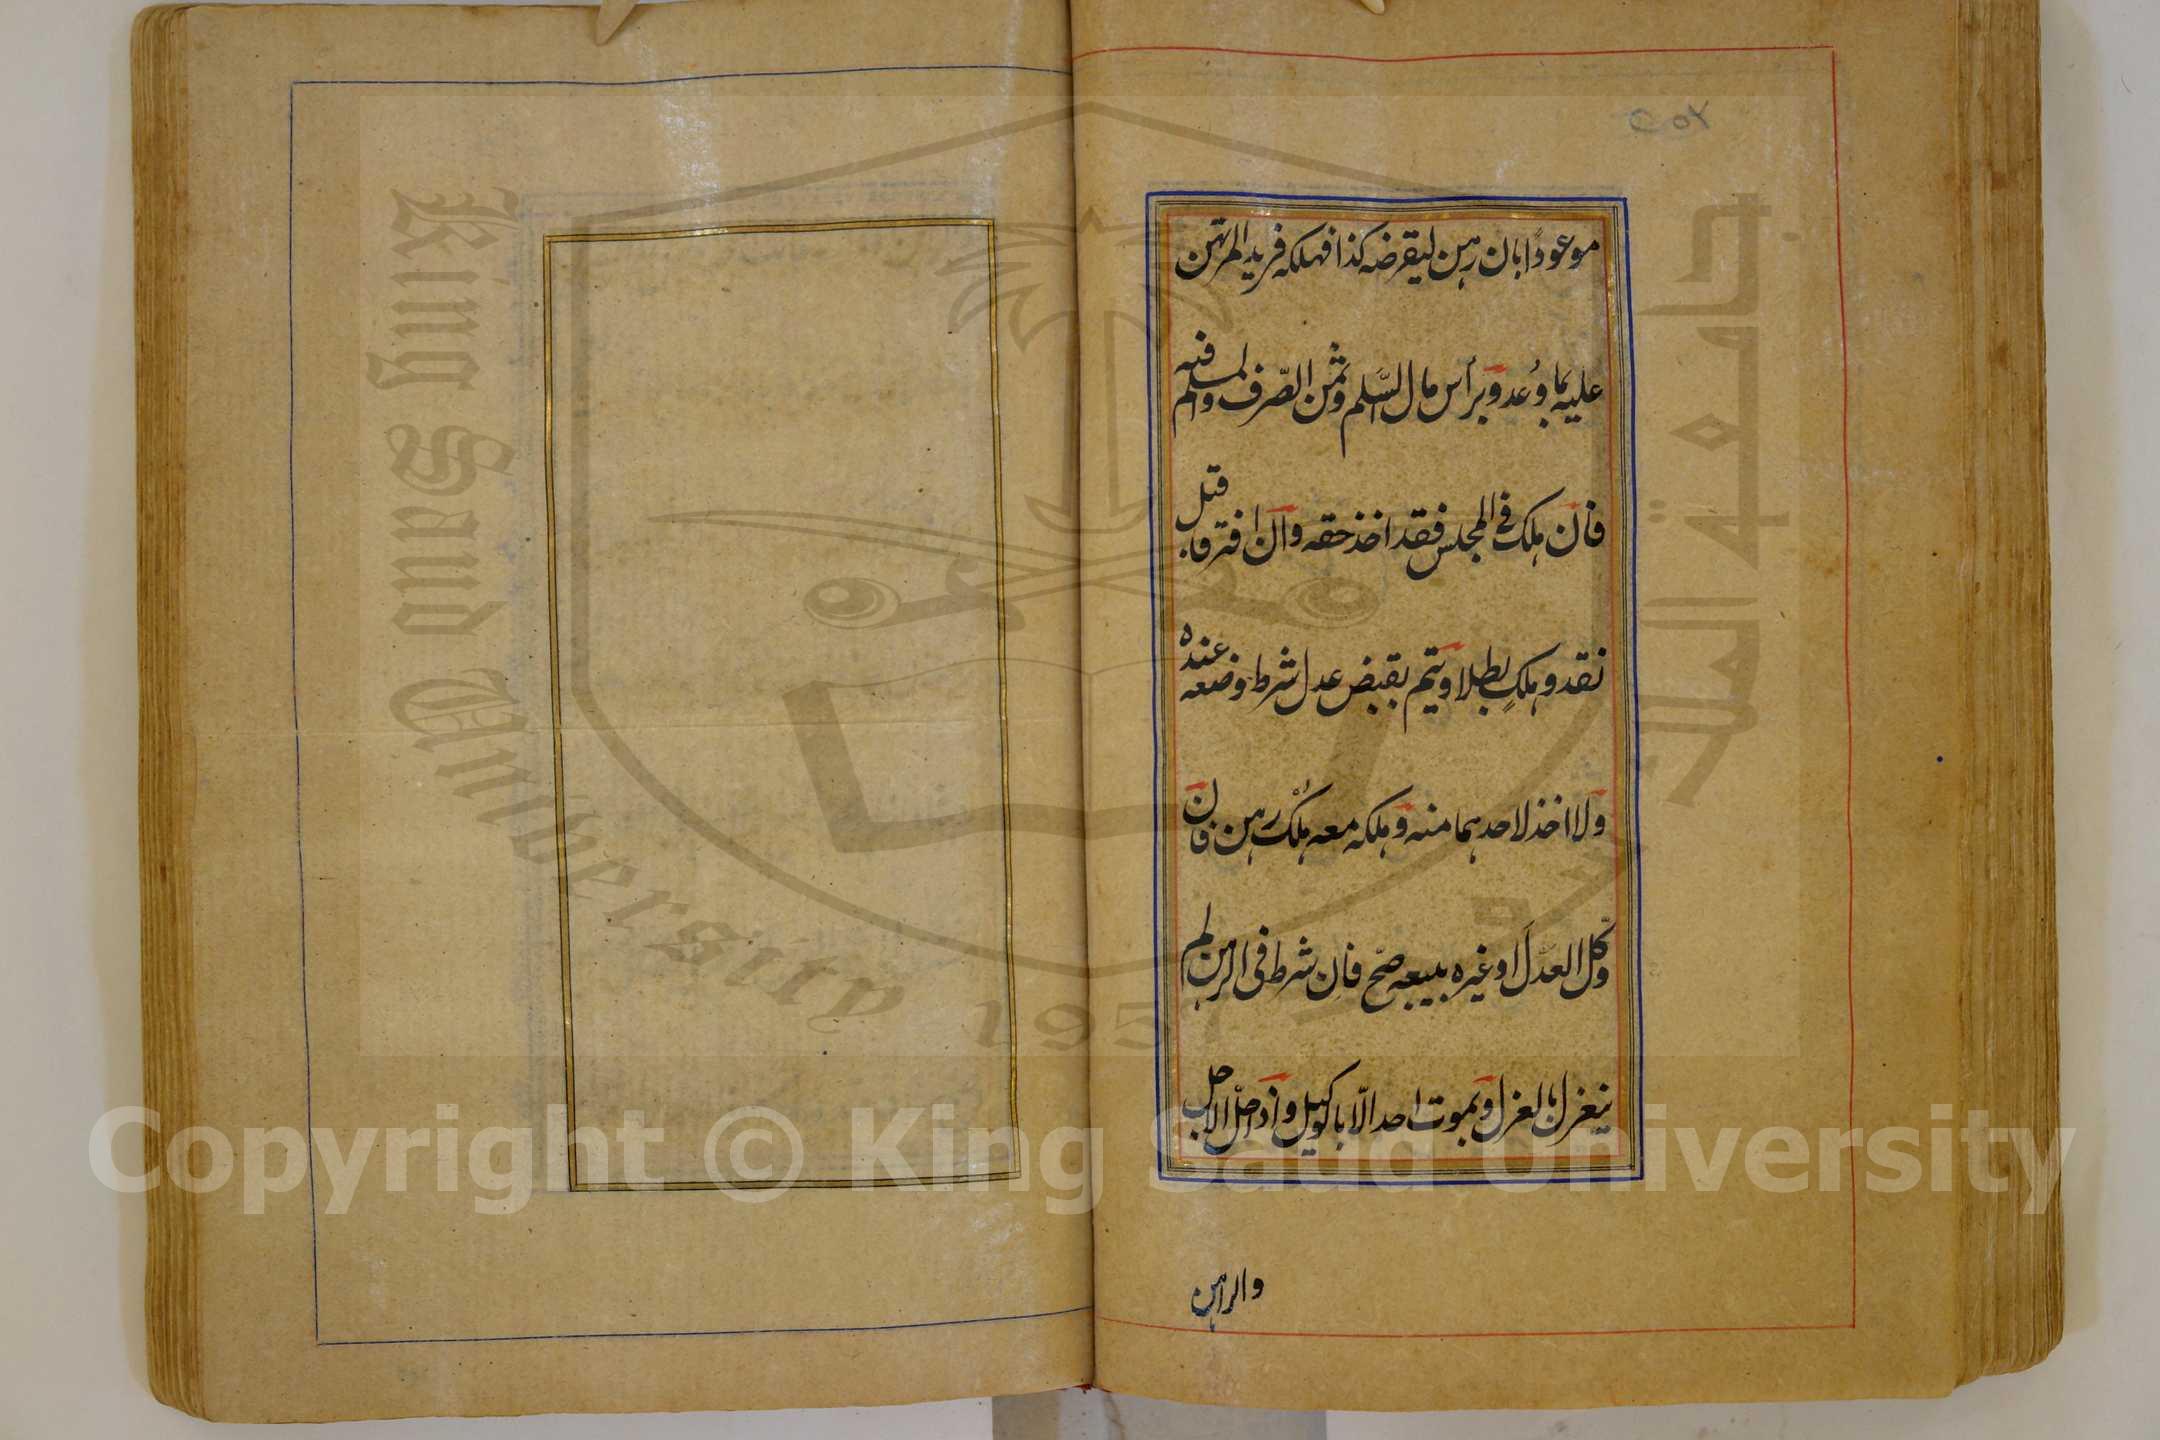 موعودًا بان رهن ليقرضه كذا فهلكه فى يد المرتهن
عليه بما وُعد وبرأس مال السَّلم وثمن الصّرف والمسلم فيه
فان هلك فى المجلس فقد اخذ حقه وان افترقا قبل
نقد وهلك بطلا ويتم بقبض عدل شرط وضعه عنده
ولا اخذ لاحدهما منه وهلكه معه هلك رهن فان
وكّل العدل او غيره ببيعه صحّ فان شرط فى الرهن لم
ينعزل بالعزل وبموت احد الّا بالوكيل واذا حلّ الاجل
والراهن
King Saud University 1957
جامعة الملك سعود
Copyright © King Saud University